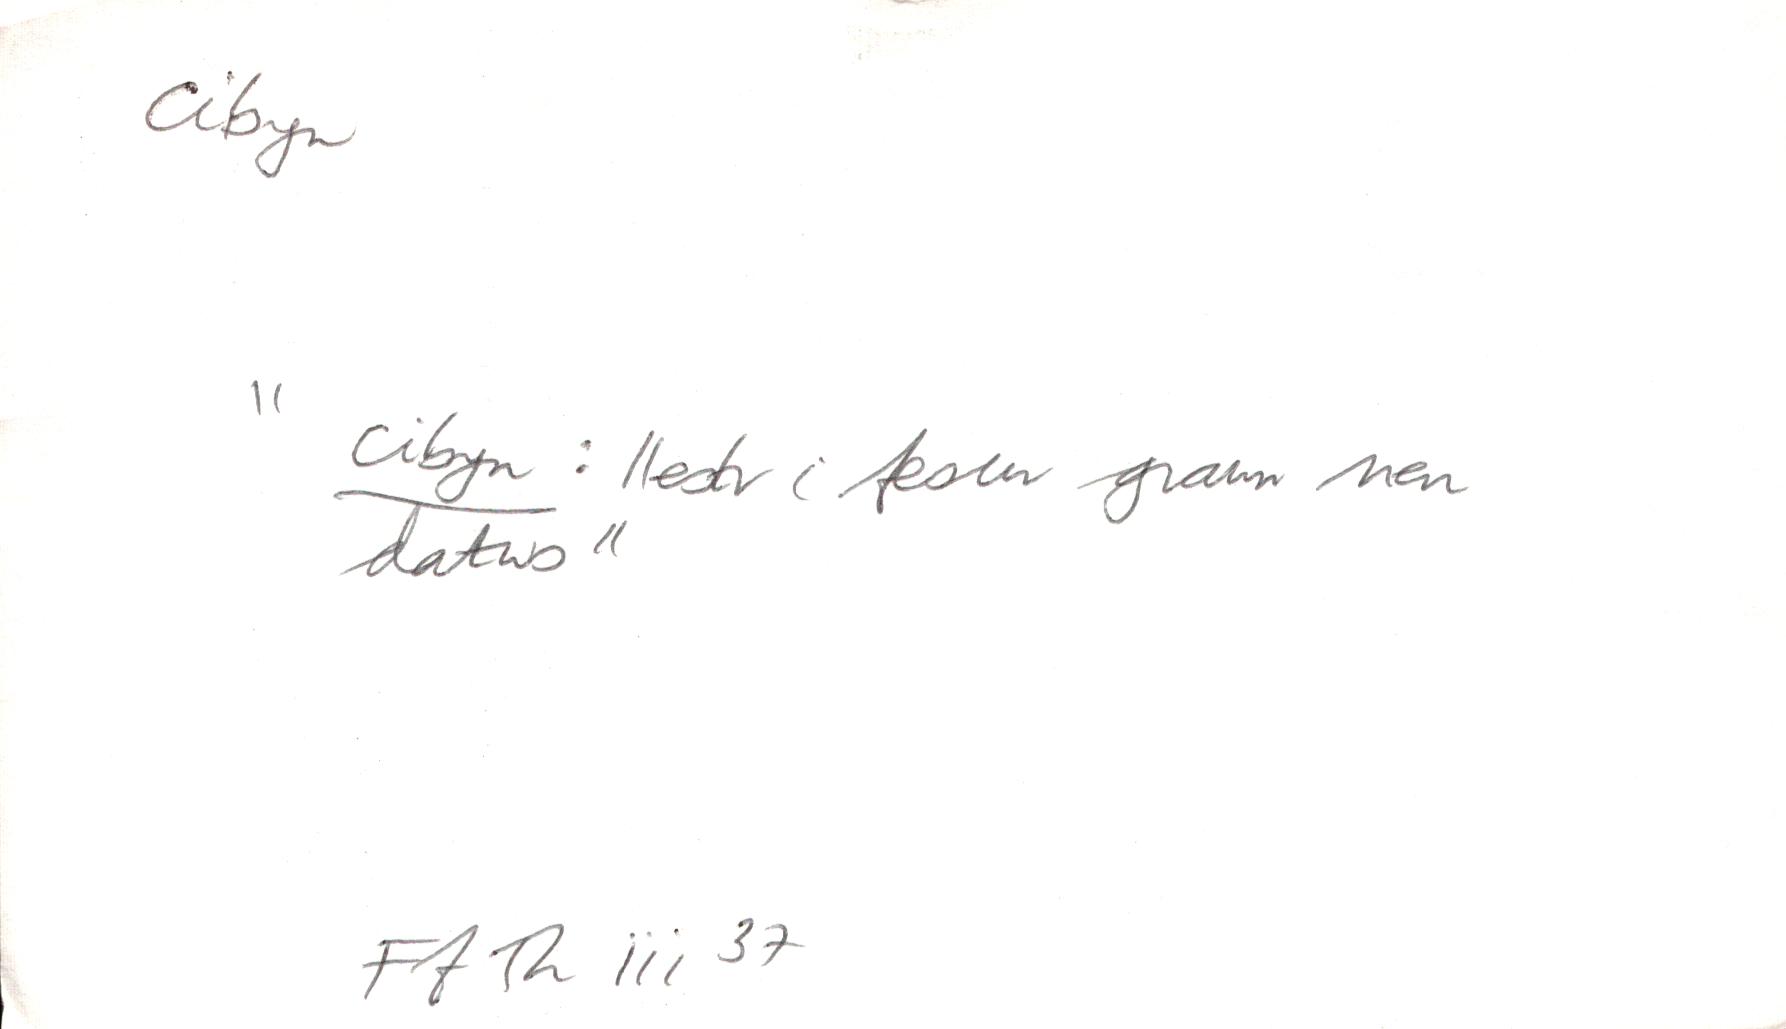 Cibyn
" cibyn : llestr i fesur grawn neu
datws "
Ff Th iii 37